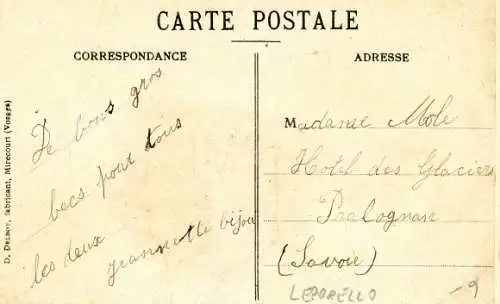 CARTE POSTALE
CORRESPONDANCE
ADRESSE
De bons gros
becs pour tous
les deux
jeannette bijou
Madame Mole
Hotel des Glaciers
Pralognan
(Savoie)
LEPORELLO
-9
D. Delboy, fabricant, Mirecourt (Vosges)